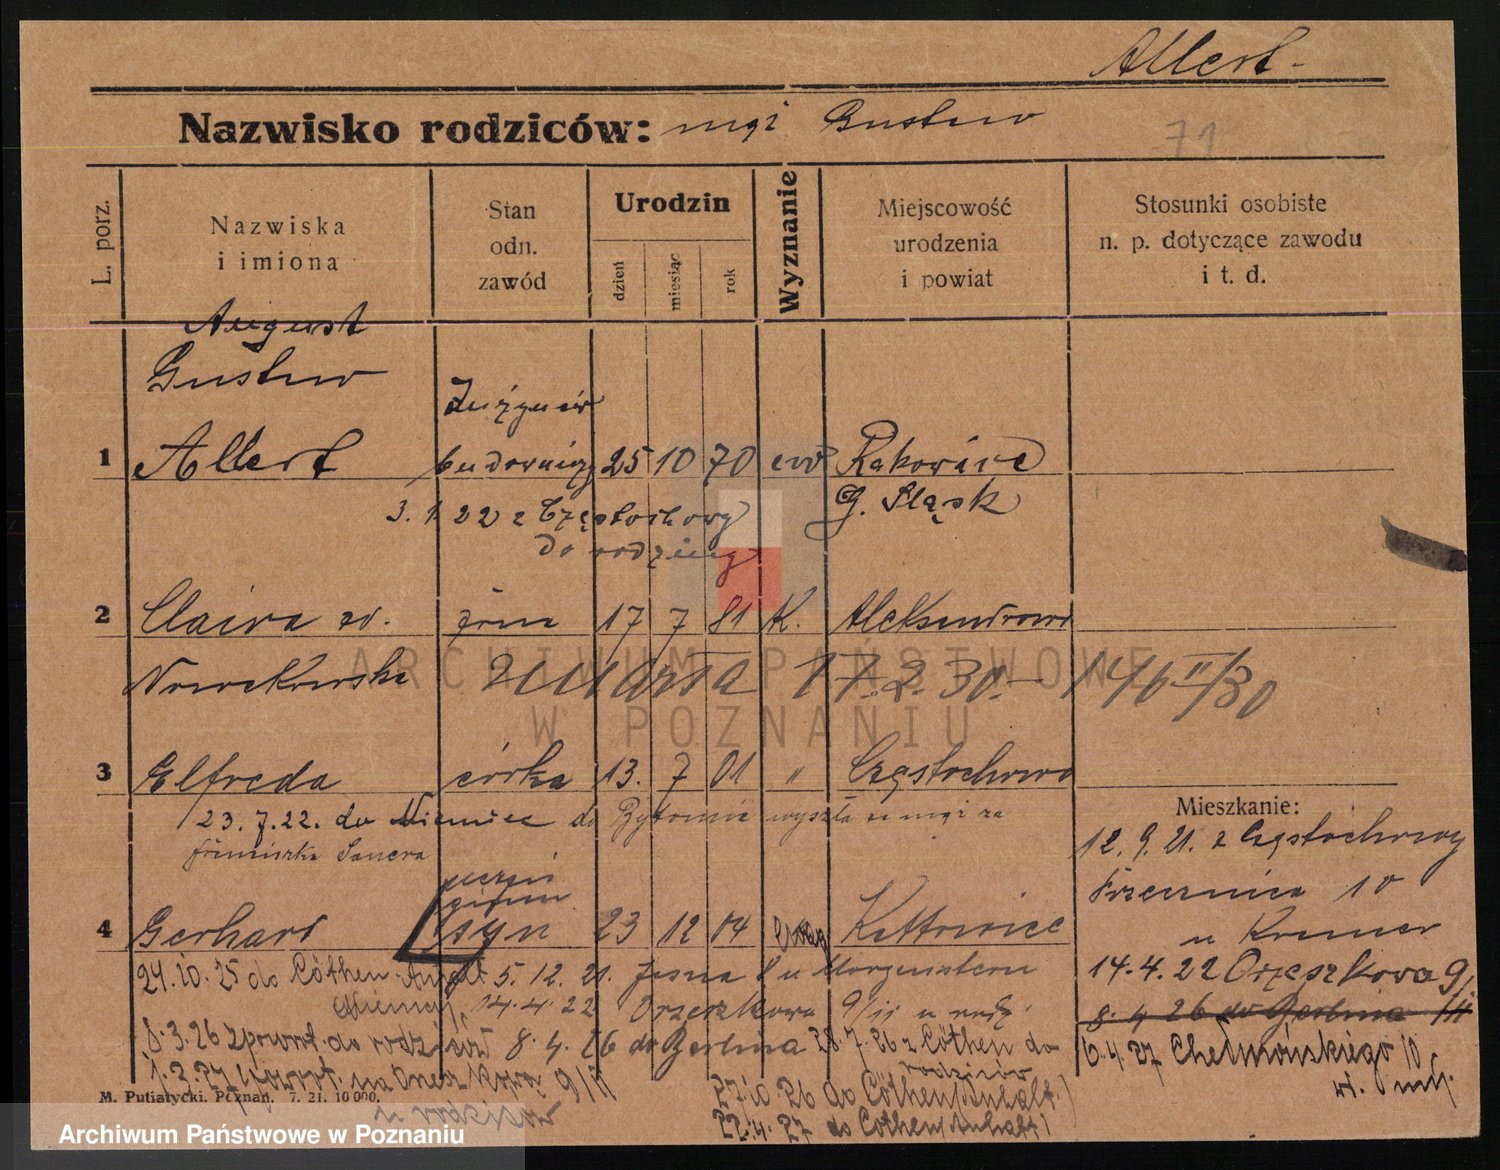 Allert.
Nazwisko rodziców: mąż Gustaw
71
L. porz.
Nazwiska i imiona
Stan odn. zawód
Urodzin
dzień miesiąc rok
Wyznanie
Miejscowość urodzenia i powiat
Stosunki osobiste n. p. dotyczące zawodu i t. d.
August
Gustaw
Inżynier
1 Allert budowniczy 25 10 70 ew Rakowice
G. Śląsk
3. 1. 22 z Częstochowy
do rodziny
2 Claira zd. żona 17 7 81 K. Aleksandrowo
Nowakowska umarła 17. 2. 30. 146 II/30
3 Elfreda córka 13. 7 01 " Częstochowa
23. 7. 22. do Niemiec do Bytomia wyszła za mąż za
Franciszka
Mieszkanie:
12. 9. 21. z Częstochowy
10
u Kremer
uczeń
gimn.
4 Gerhard syn 23 12 04 Kattowice
24. 10. 25 do Cöthen Anhalt 5. 12. 21. Jasna 8 u Morgenstern
Niemcy 14. 4. 22 Orzeszkowa 9/II u rodz.
14. 4. 22 Orzeszkowa 9/
8. 4 26 do Berlina III
8. 3. 26 z powrot. do rodziców 8. 4. 26 do Berlina 28. 7. 26 z Cöthen do
rodziców
6. 4. 27 Chełmońskiego 10
1. 3. 27 powrot. na Orzeszkowa 9/II
u rodziców
27 10. 26 do Cöthen (Anhalt)
22. 4. 27 do Cöthen (Anhalt)
M. Putiatycki, Poznań. 7. 21. 10 000.
ARCHIWUM PAŃSTWOWE
W POZNANIU
Archiwum Państwowe w Poznaniu